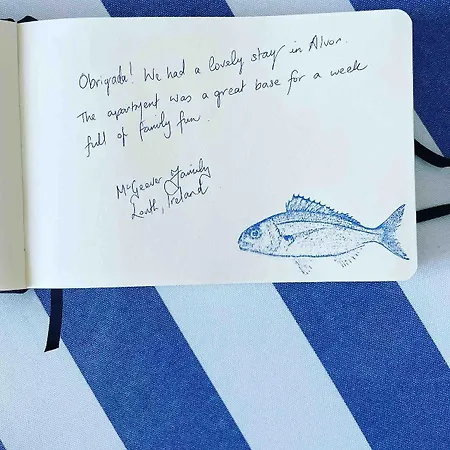 Obrigada! We had a lovely stay in Alvor.
The apartment was a great base for a week
full of family fun.
McGeever Family
Louth, Ireland